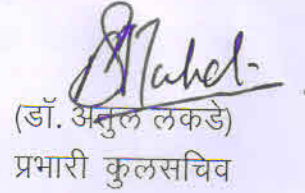 (डॉ. अतुल लकडे)
प्रभारी कुलसचिव